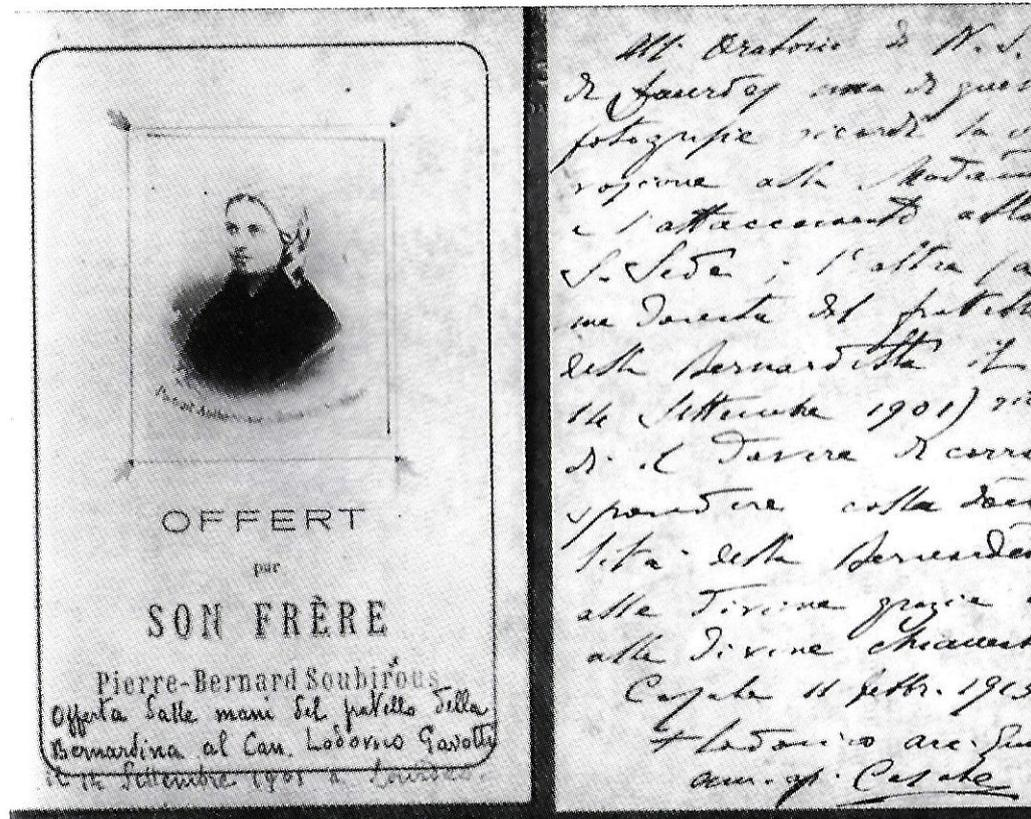 OFFERT
par
SON FRÈRE
Pierre-Bernard Soubirous
Offerta dalle mani del fratello della
Bernardina al Can. Lodovico Gavotti
il 14 Settembre 1901 a Lourdes.
All' Oratorio di N. S.
di Lourdes una di ques
fotografie ricordi la
alla Madon
e l'attaccamento alla
S. Sede ; l'altra (a
me donata dal fratello
della Bernardetta il
14 Settembre 1901) ri
di il dovere di corri
spondere colla doci
lità della Bernardet
alle divine grazie
alle divine chiamat
Casale 11 febbr. 191
+ Lodovico arc.
am. ap. Casale